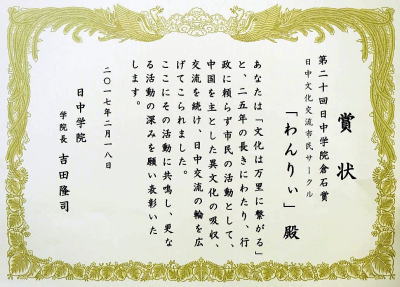 賞状
第二十回日中学院倉石賞
日中文化交流市民サークル
「わんりぃ」殿
あなたは「文化は万里に繋がる」
と、二五年の長きにわたり、行
政に頼らず市民の活動として、
中国を主とした異文化の吸収、
交流を続け、日中交流の輪を広
げてこられました。
ここにその活動に共鳴し、更な
る活動の深みを願い表彰いた
します。
二〇一七年二月一八日
日中学院
学院長 吉田隆司